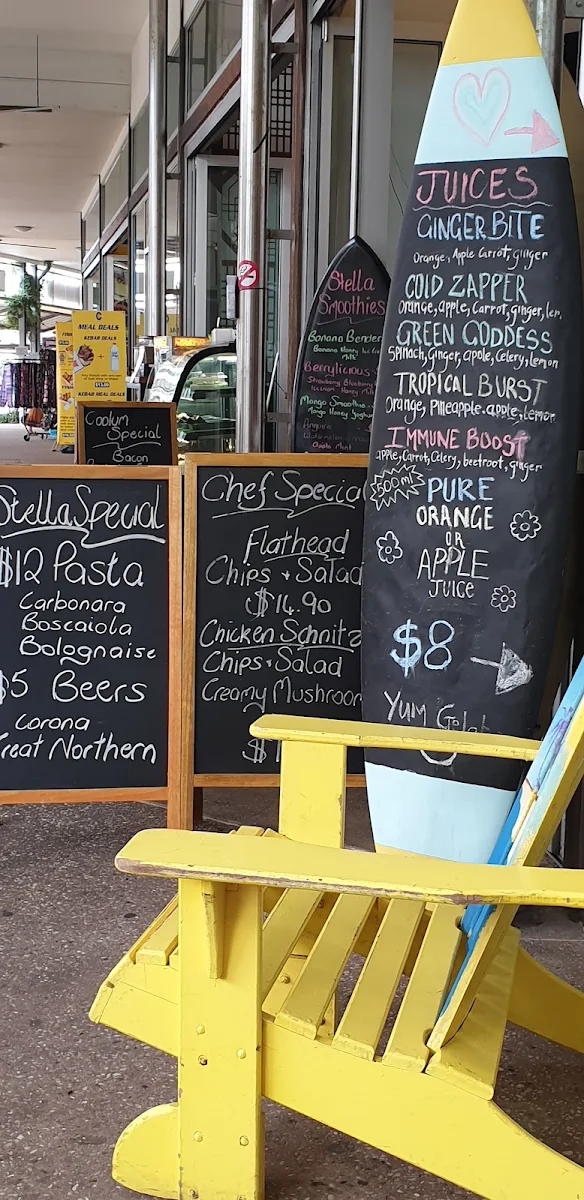 MEAL DEALS
KEBAB DEALS
KEBAB MEAL DEALS
Coolum
Special
Bacon
Stella Special
$12 Pasta
Carbonara
Boscaiola
Bolognaise
$5 Beers
Corona
Great Northern
Chef Special
Flathead
Chips + Salad
$14.90
Chicken Schnitz
Chips + Salad
Creamy Mushroom
$1
Stella
Smoothies
Banana Bender
Banana Honey
Milk
Berrylicious
Strawberry Blueberry
Mango Smoothie
Mango Honey Yoghurt
JUICES
GINGER BITE
Orange, Apple Carrot, ginger
COLD ZAPPER
Orange, apple, Carrot, ginger, lem
GREEN GODDESS
Spinach, ginger, apple, Celery, Lemon
TROPICAL BURST
Orange, Pineapple, apple, Lemon
IMMUNE BOOST
apple, Carrot, Celery, beetroot, ginger
500ml
PURE
ORANGE
OR
APPLE
JUICE
$8
YUM Gelat